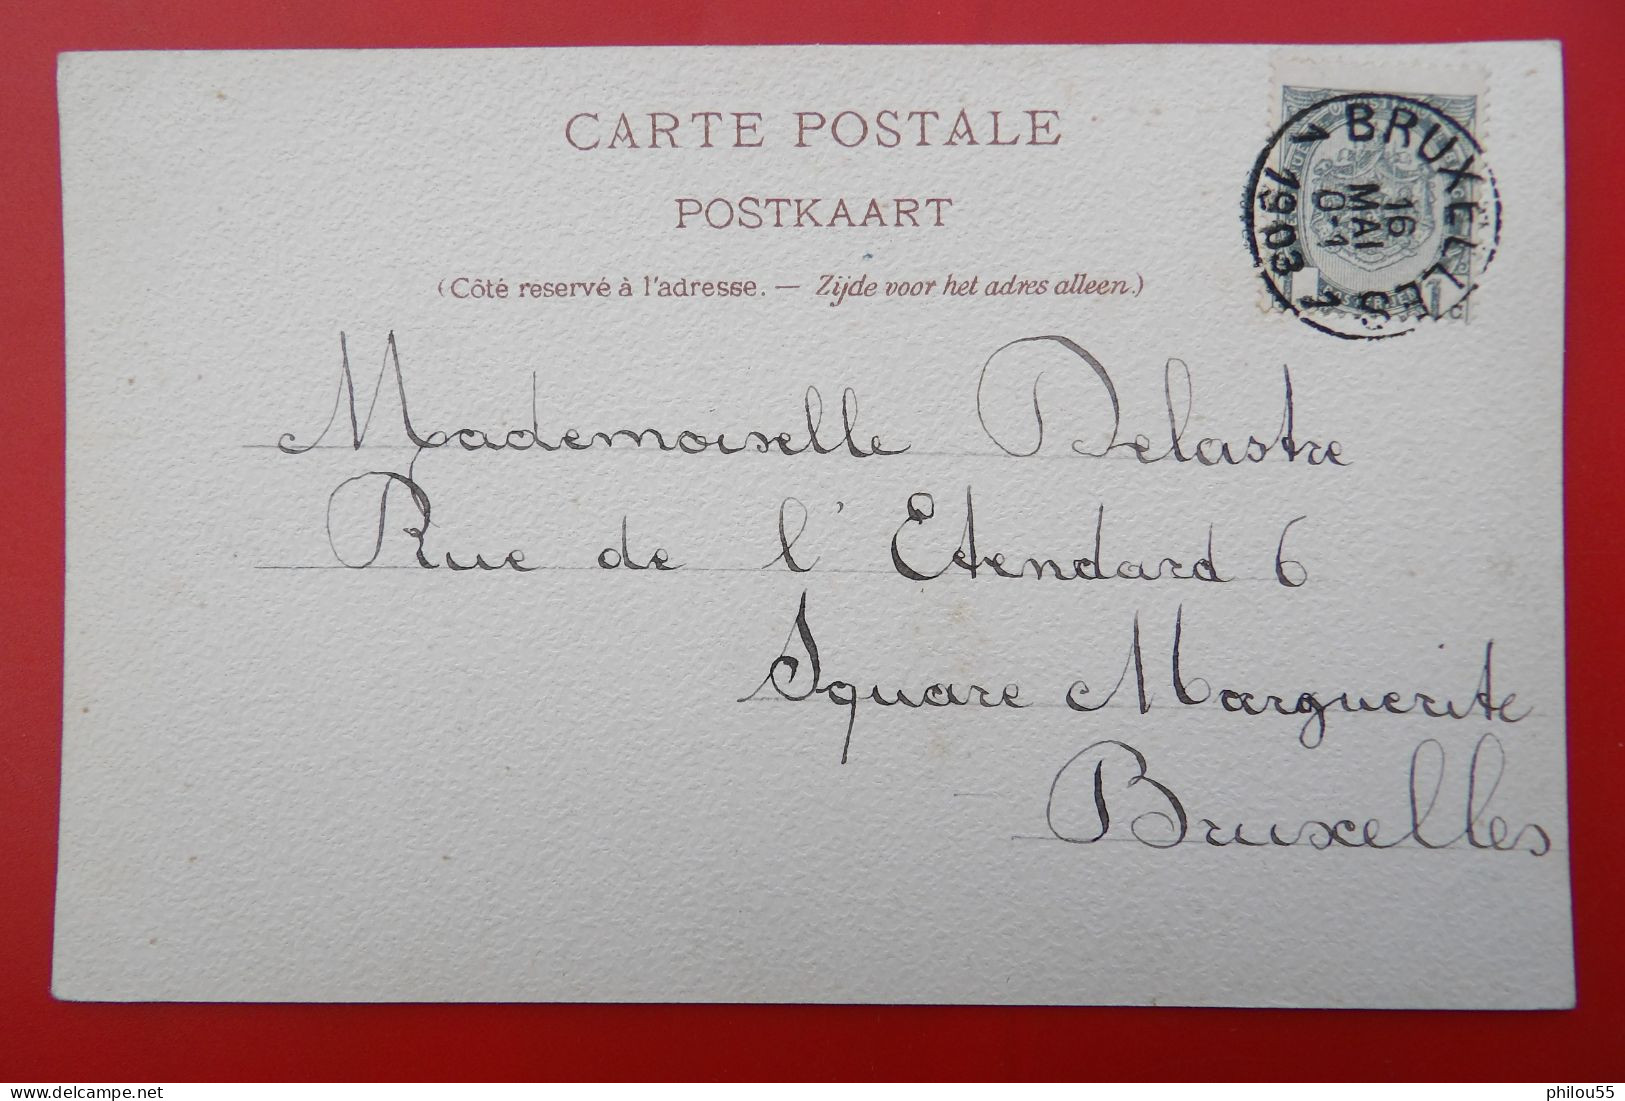 CARTE POSTALE
POSTKAART
(Côté reservé à l'adresse. — Zijde voor het adres alleen.)
1 BRUXELLES 1
16
MAI
0-1
1903
1 C
Mademoiselle Delastre
Rue de l'Etendard 6
Square Marguerite
Bruxelles
delcampe.net
philou55